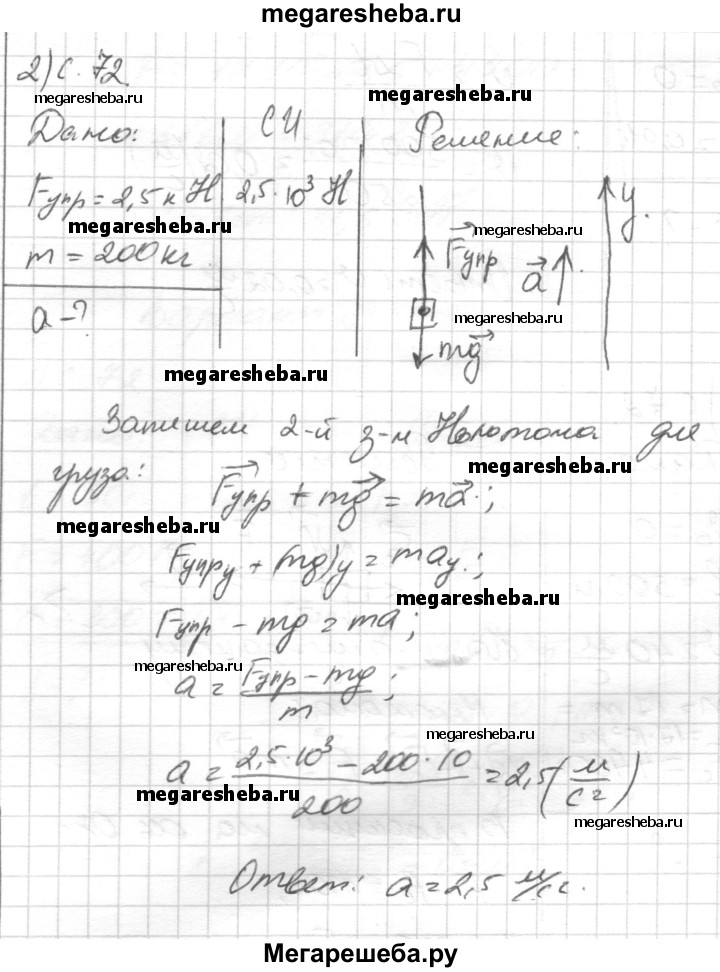 megaresheba.ru
2) с. 72
megaresheba.ru
megaresheba.ru
Дано: СИ Решение:
Fупр = 2,5 кН 2,5·10³ Н
y
megaresheba.ru
megaresheba.ru
m = 200 кг
F⃗упр
a⃗
a - ?
megaresheba.ru
mg⃗
megaresheba.ru
Запишем 2-й з-н Ньютона для
megaresheba.ru
груза: F⃗упр + mg⃗ = ma⃗;
megaresheba.ru
Fупр y + (mg)y = may;
megaresheba.ru
Fупр - mg = ma;
megaresheba.ru
a = (Fупр - mg)/m;
megaresheba.ru
a = (2,5·10³ - 200·10)/200 = 2,5 (м/с²)
megaresheba.ru
megaresheba.ru
Ответ: a = 2,5 м/с².
Мегарешеба.ру